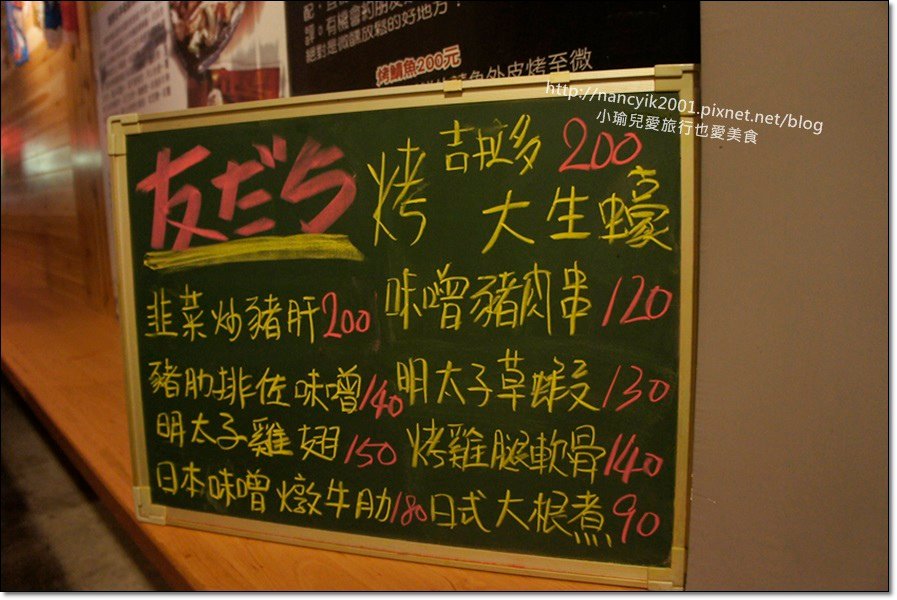 配
有機會約朋友
絕對是微醺放鬆的好地方!
烤鯖魚200元
魚外皮烤至微
http://nancyik2001.pixnet.net/blog
小瑜兒愛旅行也愛美食
友だち
烤 吉拉多 200
大生蠔
韭菜炒豬肝200
味噌豬肉串120
豬肋排佐味噌140
明太子草蝦130
明太子雞翅150
烤雞腿軟骨140
日本味噌燉牛肋180
日式大根煮90